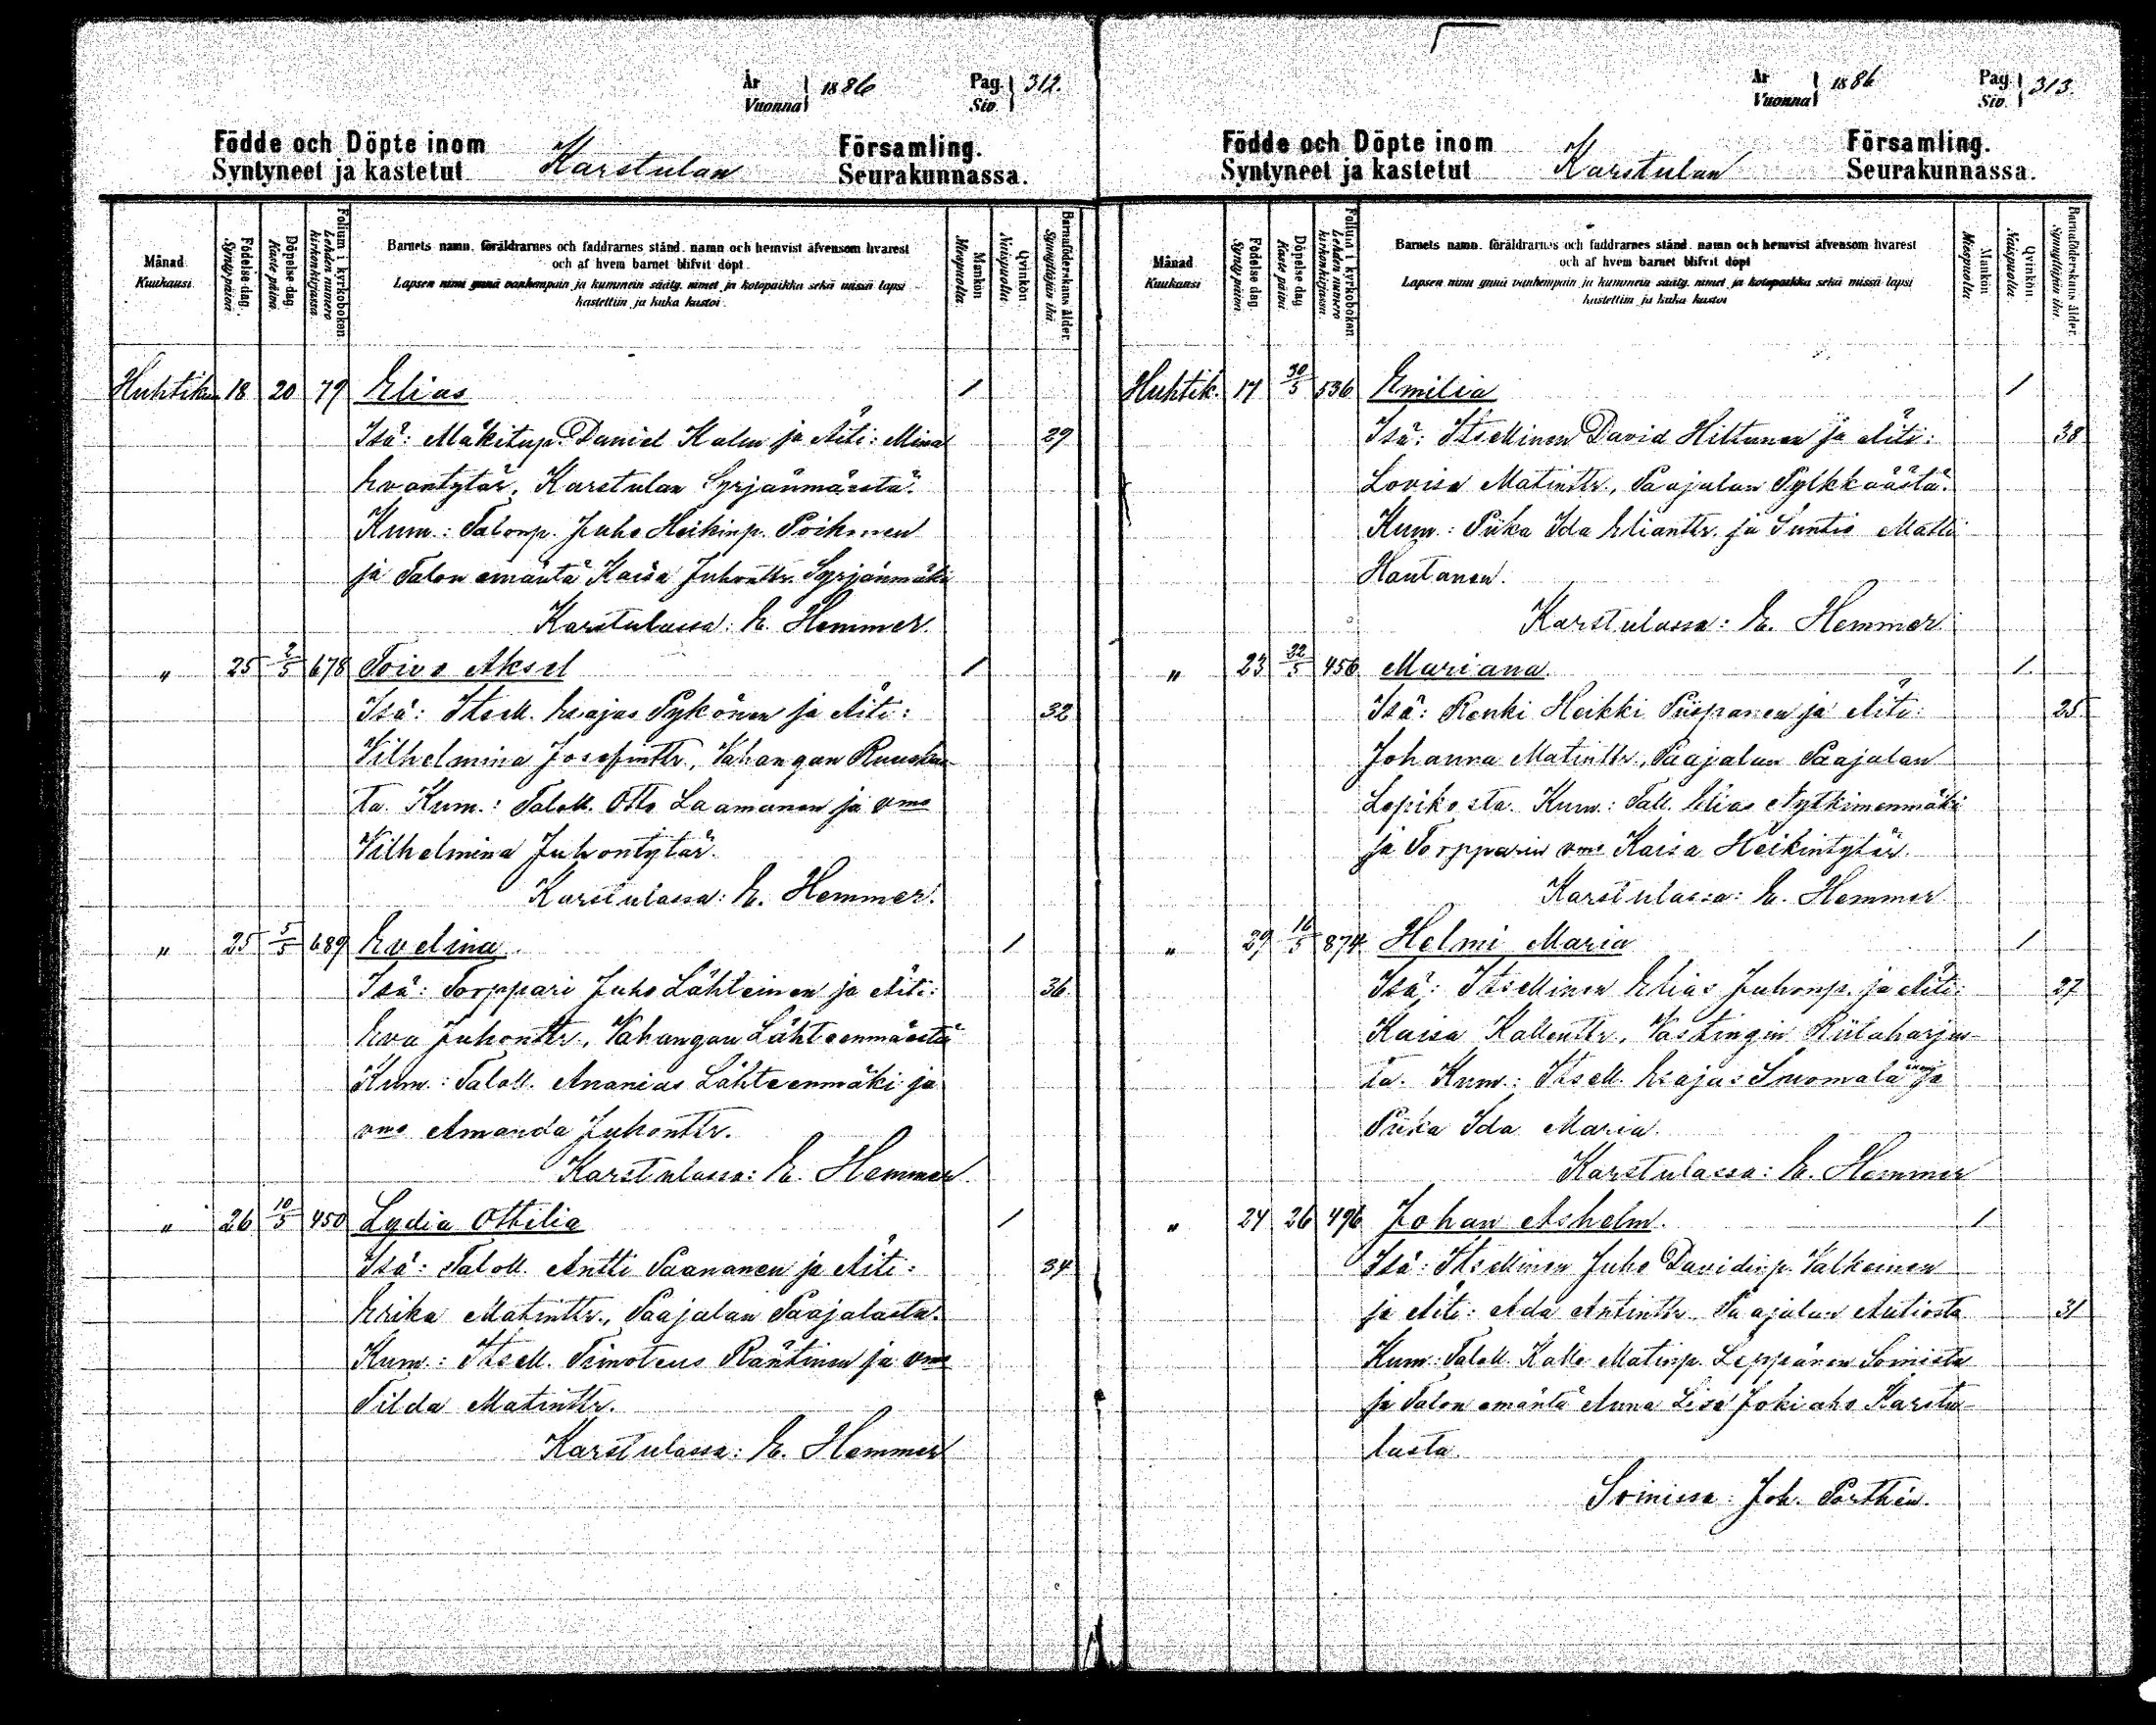 År
Vuonna 1886
Pag.
Siv. 312.
Födde och Döpte inom
Syntyneet ja kastetut
Karstulan
Församling.
Seurakunnassa.
Månad
Kuukausi
Födelse dag.
Syntypäivä
Döpelse dag
Kastepäivä
Folium i kyrkoboken
Lehden numero
kirkonkirjassa.
Barnets namn, föräldrarnes och faddrarnes stånd, namn och hemvist äfvensom hvarest
och af hvem barnet blifvit döpt.
Lapsen nimi ynnä vanhempain ja kummein sääty, nimet ja kotopaikka sekä missä lapsi
kastettiin ja kuka kastoi.
Mankön
Miespuolta
Qvinkön
Naispuolta.
Barnaföderskans ålder.
Synnyttäjän ikä
Huhtikuu 18 20 79 Elias 1
Isä: Mäkitup. Daniel Kalm ja Äiti: Mina 29
Evantytär, Karstulan Syrjänmäestä.
Kum.: Talonp. Juho Heikinp. Poikonen
ja Talon emäntä Kaisa Juhontr. Syrjänmäki
Karstulassa: E. Hemmer.
" 25 2/5 678 Toivo Aksel 1
Isä: Itsell. Esajas Pykönen ja Äiti: 32
Vilhelmina Josefinttr., Vahangan Ruuskan-
ta. Kum.: Taloll. Otto Laamanen ja vmo
Vilhelmina Juhontytär.
Karstulassa: E. Hemmer.
" 25 5/5 689 Evelina 1
Isä: Torppari Juho Lähteinen ja Äiti: 36.
Eva Juhonttr., Vahangan Lähteenmäestä
Kum.: Taloll. Ananias Lähteenmäki ja
vmo Amanda Juhonttr.
Karstulassa: E. Hemmer.
" 26 10/5 450 Lydia Ottilia 1
Isä: Taloll. Antti Paananen ja Äiti: 34
Erika Matinttr., Paajalan Paajalasta.
Kum.: Itsell. Timoteus Räntinen ja vmo
Tilda Matinttr.
Karstulassa: E. Hemmer
År
Vuonna 1886
Pag.
Siv. 313.
Födde och Döpte inom
Syntyneet ja kastetut
Karstulan
Församling.
Seurakunnassa.
Månad
Kuukausi
Födelse dag
Syntypäivä
Döpelse dag
Kastepäivä
Folium i kyrkoboken
Lehden numero
kirkonkirjassa.
Barnets namn, föräldrarnes och faddrarnes stånd, namn och hemvist äfvensom hvarest
och af hvem barnet blifvit döpt
Lapsen nimi ynnä vanhempain ja kummein sääty, nimet ja kotopaikka sekä missä lapsi
kastettiin ja kuka kastoi
Mankön
Miespuolta
Qvinkön.
Naispuolta.
Barnaföderskans ålder.
Synnyttäjän ikä.
Huhtik. 17 30/5 536 Emilia 1
Isä: Itsellinen David Hiltunen ja Äiti: 38
Lovisa Matinttr., Paajalan Pylkkäästä.
Kum.: Piika Ida Elianttr. ja Suntio Matti
Hautanen.
Karstulassa: E. Hemmer
" 23 22/5 456 Mariana. 1.
Isä: Renki Heikki Piispanen ja Äiti: 25.
Johanna Matinttr., Paajalan Paajalan
Lepikosta. Kum.: Tall. Elias Nytkimenmäki
ja Torpparin vmo Kaisa Heikintytär.
Karstulassa: E. Hemmer
" 29 16/5 874 Helmi Maria 1
Isä: Itsellinen Elias Juhonp. ja Äiti: 27
Kaisa Kallenttr, Vastingin Riitaharjus-
ta. Kum.: Itsell. Esajas Suomala ja
Piika Ida Maria.
Karstulassa: E. Hemmer
" 24 26 496 Johan Ashelm. 1
Isä: Itsellinen Juho Davidinp. Valkeinen
ja Äiti: Ada Antinttr. Paajalan Autiosta 31
Kum.: Taloll. Kalle Matinp. Leppänen Soinista
ja Talon emäntä Anna Lisa Jokiaho Karstu-
lasta.
Soinissa: Joh. Porthén.